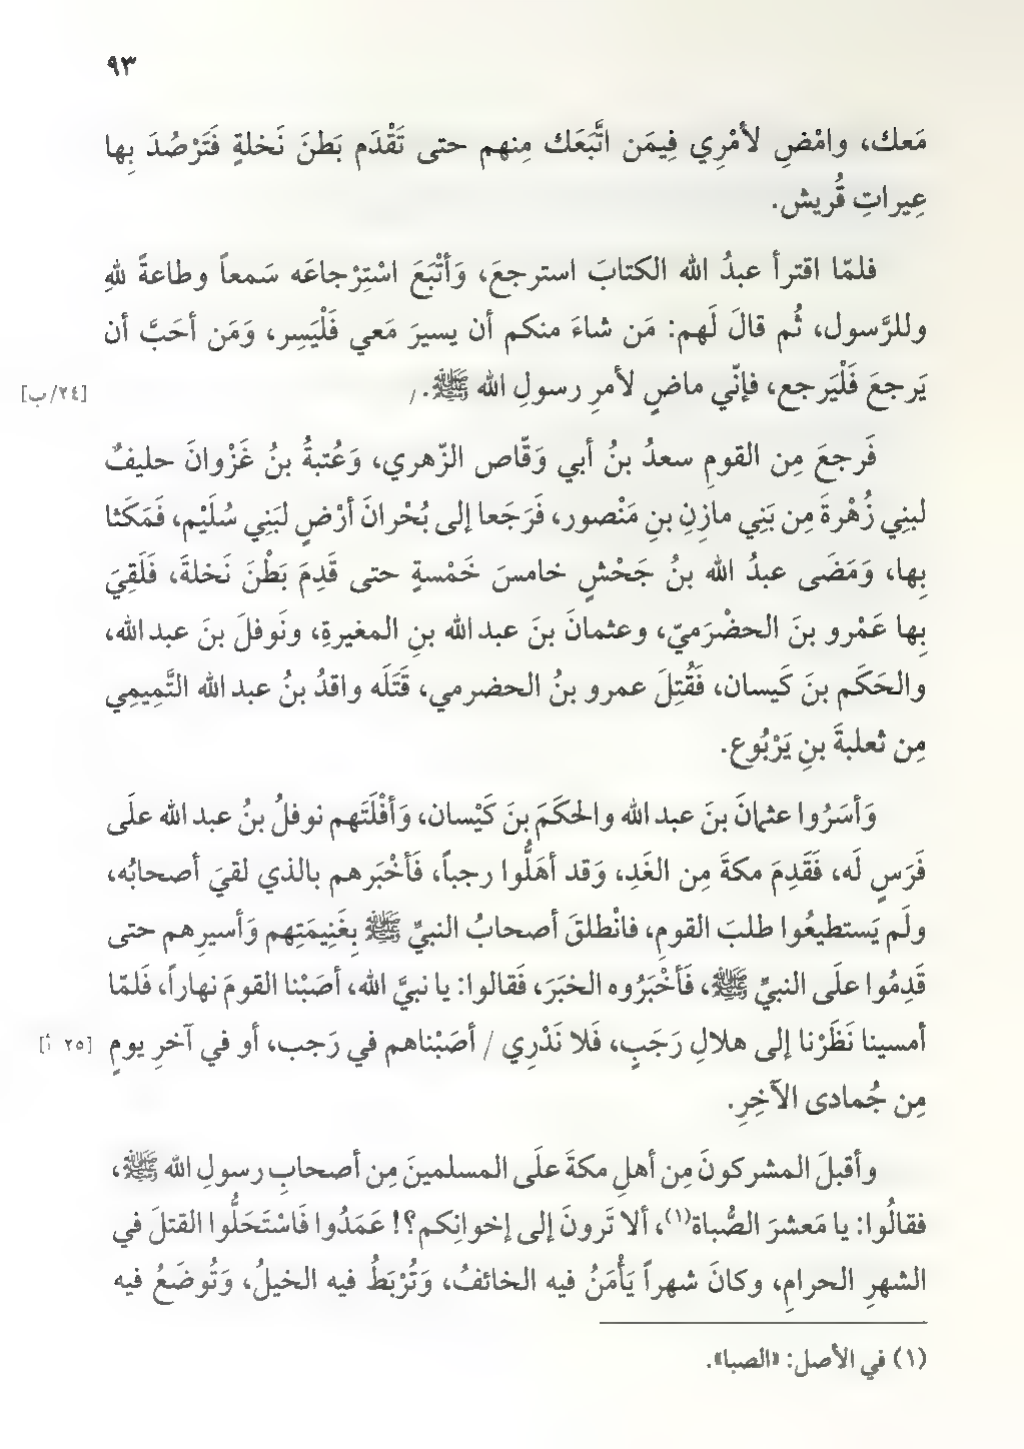 ٩٣
مَعك، وامْضِ لأمْرِي فِيمَن اتَّبَعَك مِنهم حتى تَقْدَم بَطنَ نَخلةٍ فَتَرْصُدَ بِها
عِيراتِ قُريش.
فلمّا اقترأ عبدُ الله الكتابَ استرجعَ، وَأتْبَعَ اسْتِرْجاعَه سَمعاً وطاعةً للهِ
وللرَّسول، ثُم قالَ لَهم: مَن شاءَ منكم أن يسيرَ مَعي فَلْيَسِر، وَمَن أحَبَّ أن
يَرجعَ فَلْيَرجع، فإنّي ماضٍ لأمرِ رسولِ الله ﷺ. / [٢٤/ب]
فَرجعَ مِن القومِ سعدُ بنُ أبي وَقّاص الزّهري، وَعُتبةُ بنُ غَزْوانَ حليفٌ
لبنِي زُهْرةَ مِن بَنِي مازِنِ بنِ مَنْصور، فَرَجَعا إلى بُحْرانَ أرْضٍ لبَنِي سُلَيْم، فَمَكَثا
بِها، وَمَضَى عبدُ الله بنُ جَحْشٍ خامسَ خَمْسةٍ حتى قَدِمَ بَطْنَ نَخلةَ، فَلَقِيَ
بِها عَمْرو بنَ الحضْرَميّ، وعثمانَ بنَ عبد الله بنِ المغيرةِ، ونَوفلَ بنَ عبد الله،
والحَكَم بنَ كَيسان، فَقُتِلَ عمرو بنُ الحضرمي، قَتَلَه واقدُ بنُ عبد الله التَّمِيمِي
مِن ثعلبةَ بنِ يَرْبُوع.
وَأسَرُوا عثمانَ بنَ عبد الله والحكَمَ بنَ كَيْسان، وَأفْلَتَهم نوفلُ بنُ عبد الله علَى
فَرَسٍ لَه، فَقَدِمَ مكةَ مِن الغَدِ، وَقد أهَلُّوا رجباً، فَأخْبَرهم بالذي لقيَ أصحابُه،
ولَم يَستطيعُوا طلبَ القومِ، فانْطلقَ أصحابُ النبيِّ ﷺ بِغَنِيمَتِهم وَأسيرِهم حتى
قَدِمُوا علَى النبيِّ ﷺ، فَأخْبَرُوه الخبَرَ، فَقالوا: يا نبيَّ الله، أصَبْنا القومَ نهاراً، فَلمّا
أمسينا نَظَرْنا إلى هلالِ رَجَبٍ، فَلا نَدْرِي / أصَبْناهم في رَجب، أو في آخرِ يومٍ [٢٥ أ]
مِن جُمادى الآخِرِ.
وأقبلَ المشركونَ مِن أهلِ مكةَ علَى المسلمينَ مِن أصحابِ رسولِ الله ﷺ،
فقالُوا: يا مَعشرَ الصُّباة(١)، ألا تَرونَ إلى إخوانِكم؟! عَمَدُوا فَاسْتَحَلُّوا القتلَ في
الشهرِ الحرامِ، وكانَ شهراً يَأْمَنُ فيه الخائفُ، وَتُرْبَطُ فيه الخيلُ، وَتُوضَعُ فيه
(١) في الأصل: «الصبا».